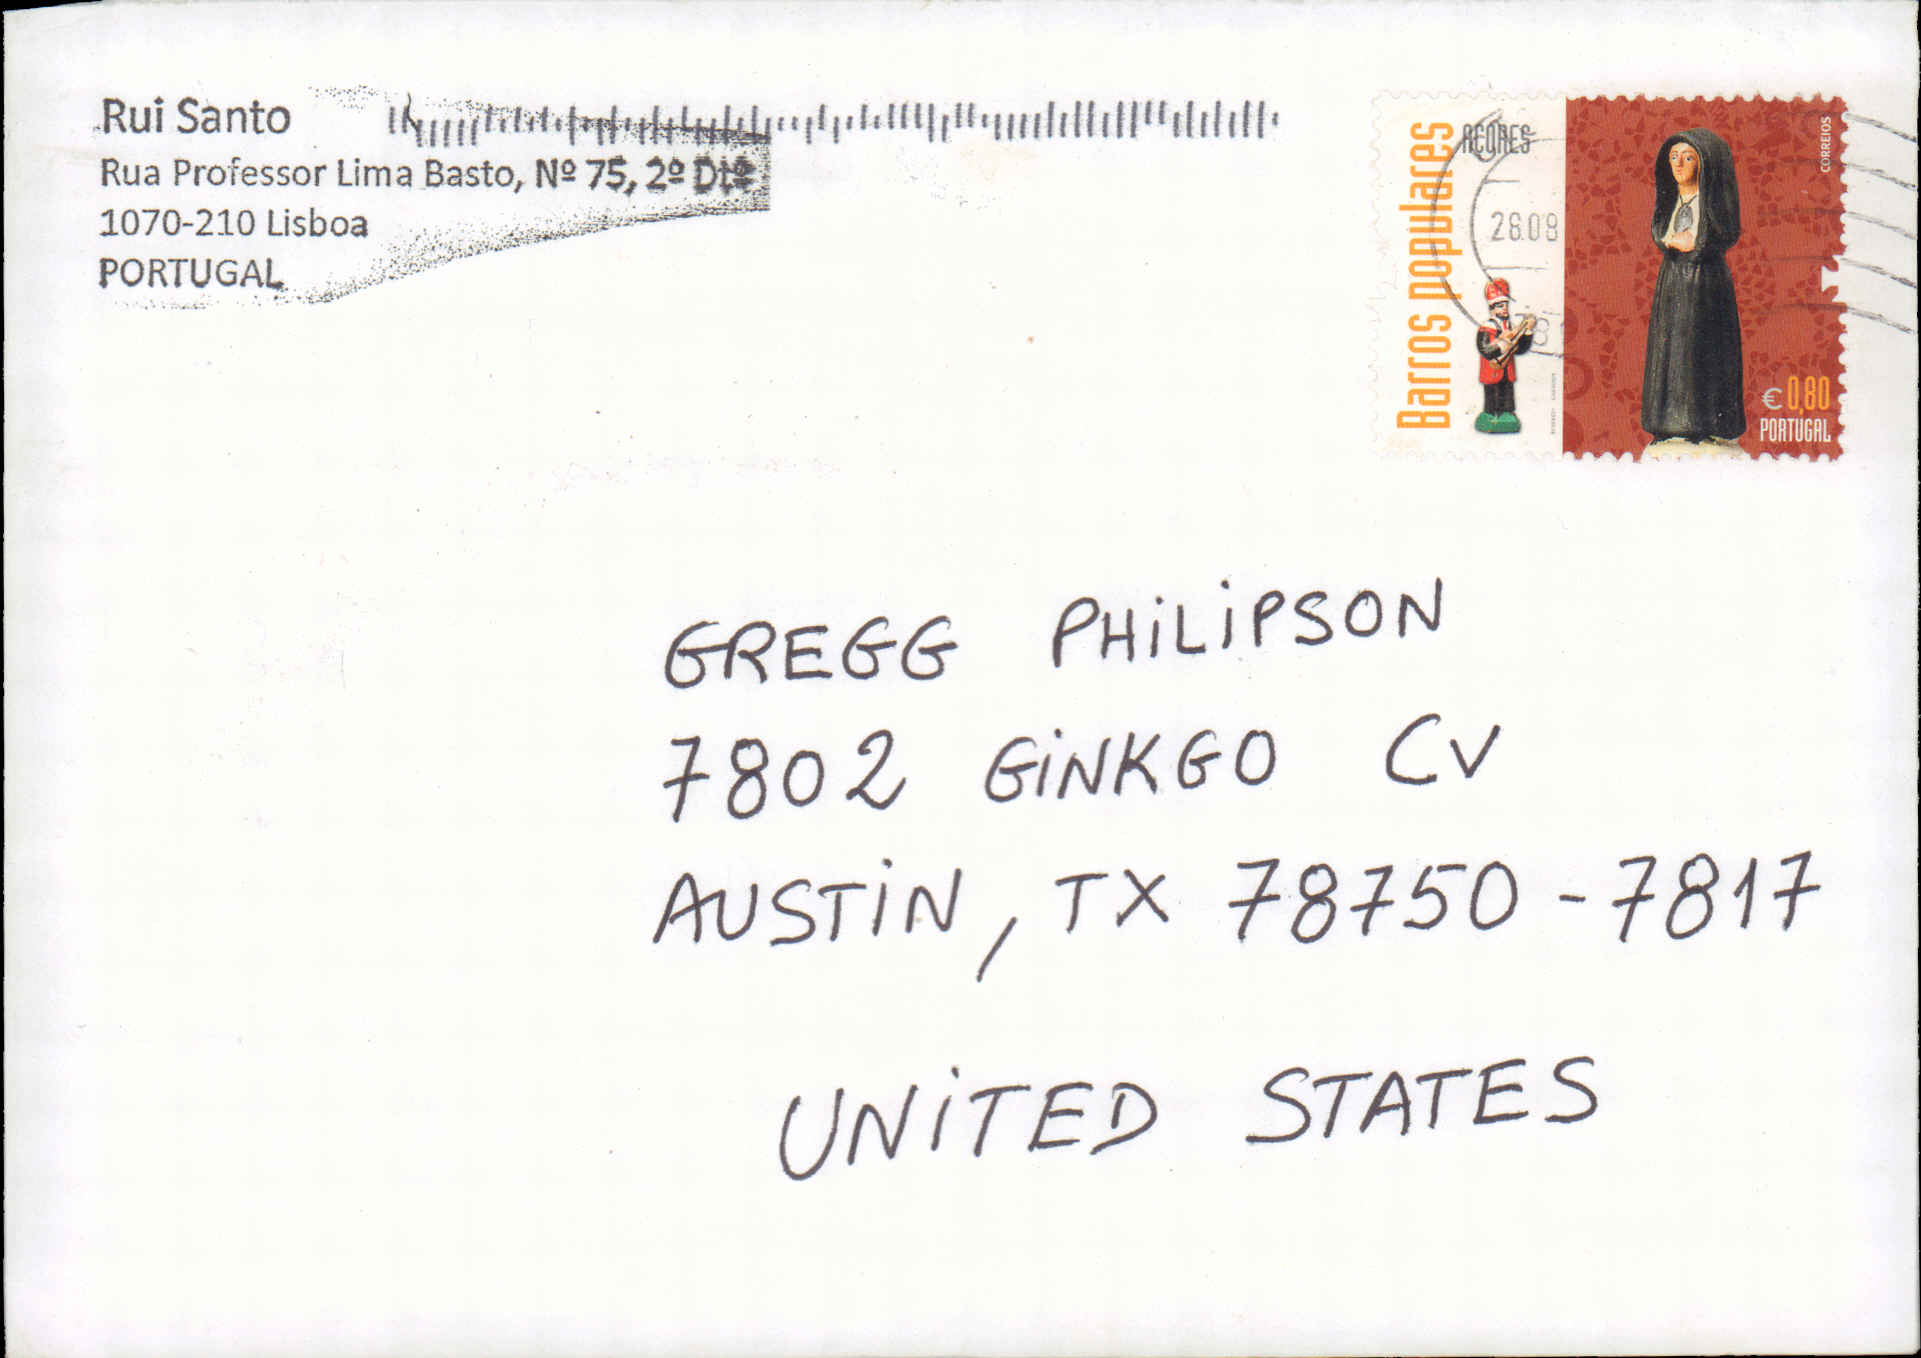 Rui Santo
Rua Professor Lima Basto, Nº 75, 2º Dtº
1070-210 Lisboa
PORTUGAL
Barros populares
AÇORES
CORREIOS
26.09
€ 0,80
PORTUGAL
GREGG PHiLiPSON
7802 GiNKGO CV
AUSTiN, TX 78750-7817
UNiTED STATES